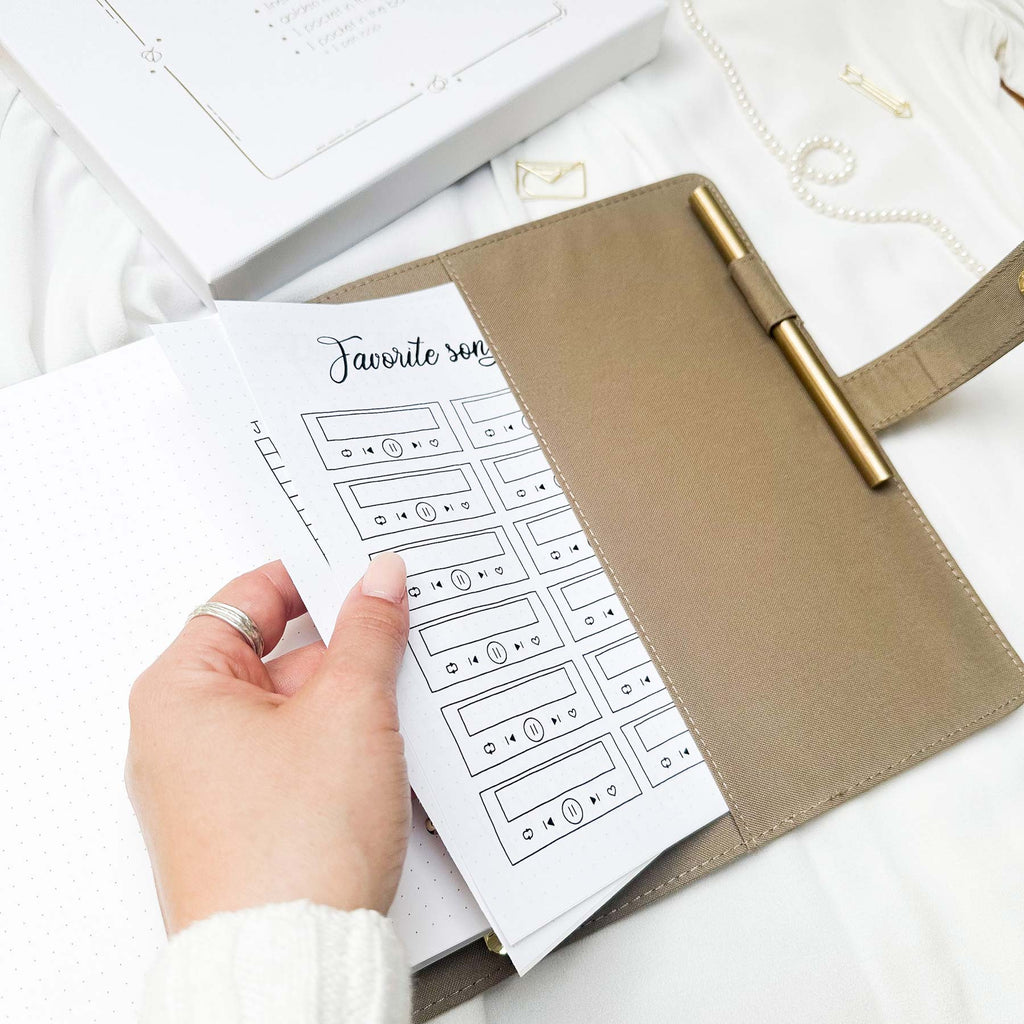 golden
1 pocket in the
1 pocket in the ba
Favorite son
J